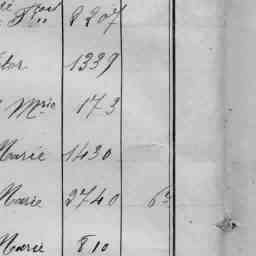 2207
1339
Mrie 173
Marie 1430
Marie 2740 6
Marie 810